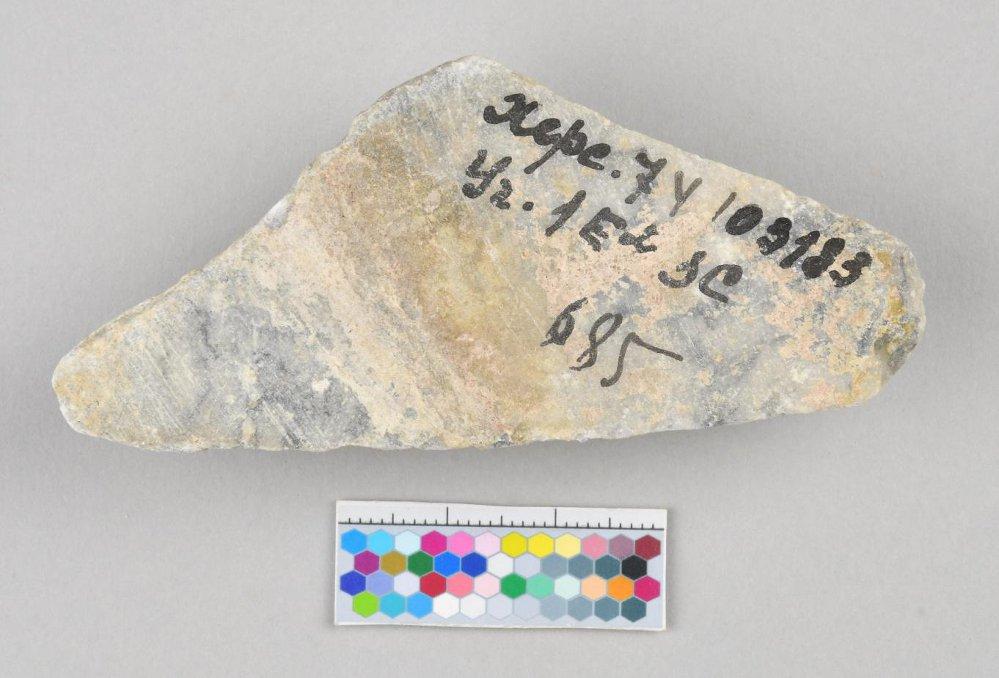 Херс. 7 У 103183
Уг. 1 Ел 3С
685